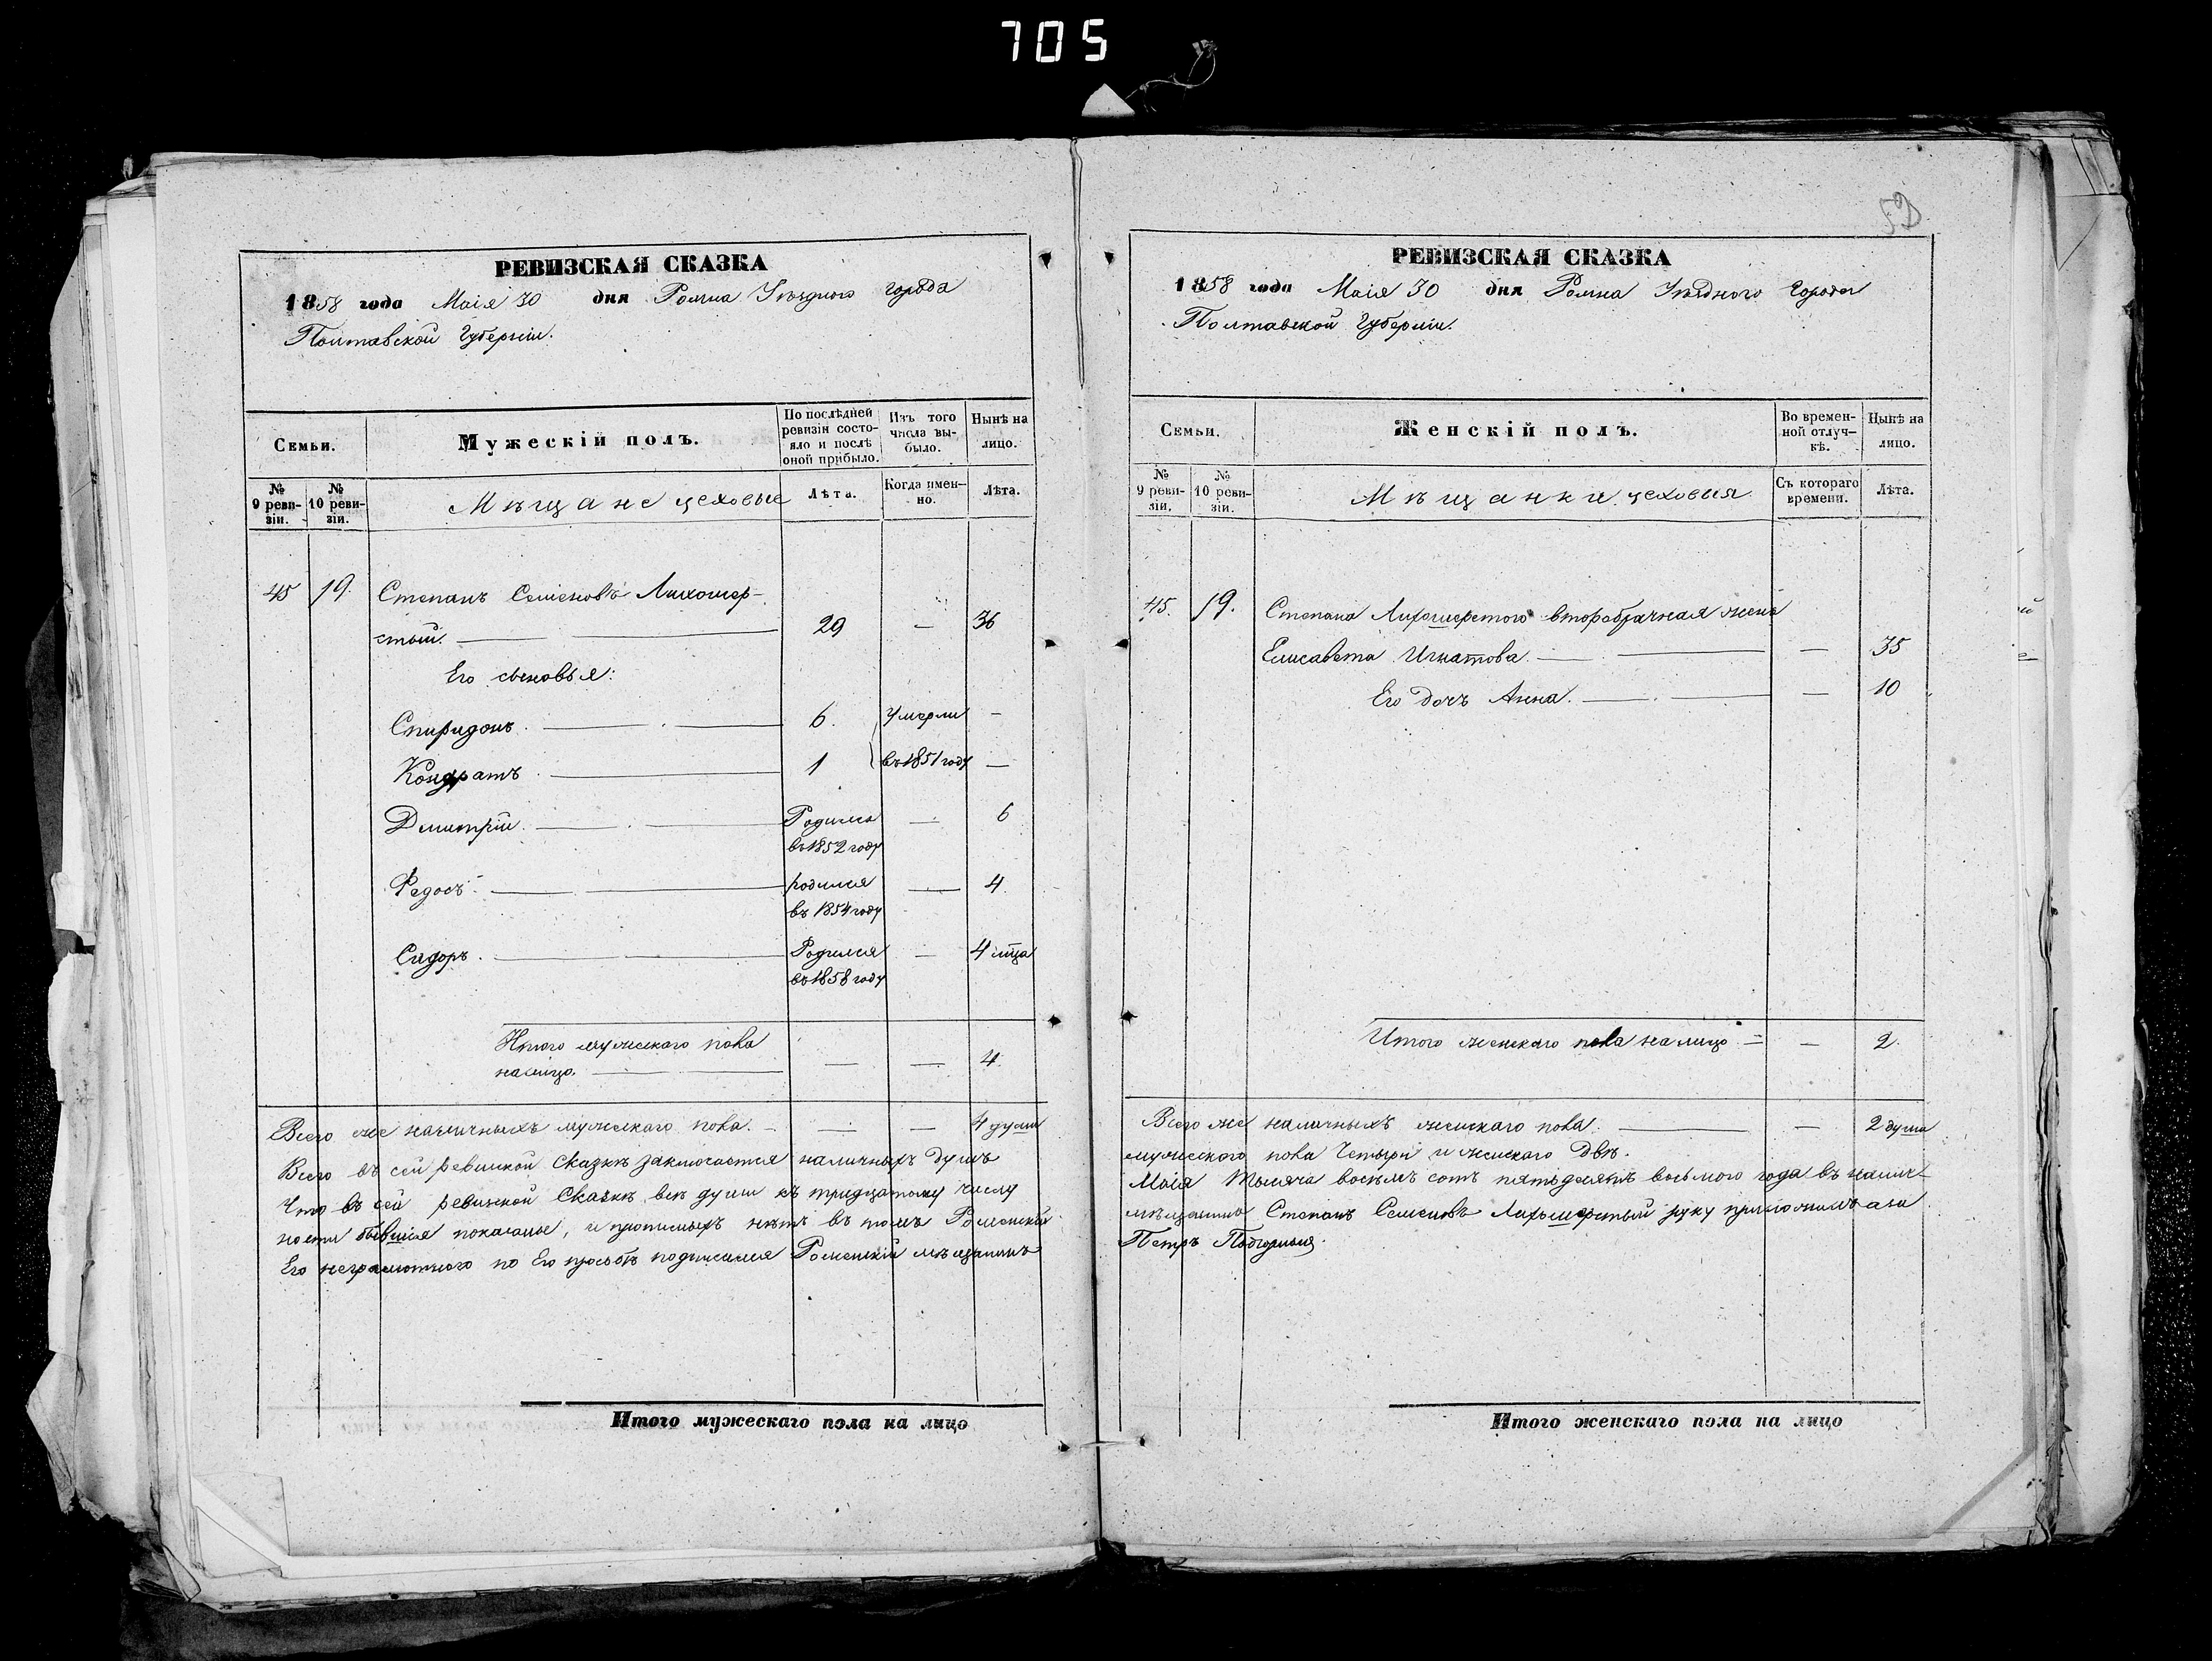 705
РЕВИЗСКАЯ СКАЗКА
1858 года Маія 30 дня Ромна Уѣзднаго города
Полтавской Губерніи.
Семьи.
Мужескій полъ.
По послѣдней ревизіи состо-
яло и послѣ оной прибыло.
Изъ того числа вы-
было.
Нынѣ на лицо.
№ 9 реви-
зіи.
№ 10 реви-
зіи.
Мѣщане цеховые
Лѣта.
Когда имен-
но.
Лѣта.
45 19. Степанъ Семеновъ Лихошер-
стый. 29 — 36
Его сыновья:
Спиридонъ. 6. умерли —
Кондратъ 1 въ 1851 году —
Дмитрій. Родился — 6
въ 1852 году
Федосъ родился — 4
въ 1854 году
Сидоръ. Родился — 4 мца
въ 1858 году
Итого мужескаго пола
налицо. — — 4
Всего же наличныхъ мужескаго пола. — — 4 души
Всего въ сей ревизкой Сказкѣ заключается наличныхъ душъ
Что въ сей ревизкой Сказкѣ всѣ души къ тридцатому числу
ности бывшія показаны, и прописныхъ нѣтъ въ томъ Роменскій
Его неграмотного по Его прозьбѣ подписался Роменскій мѣщанинъ
Итого мужескаго пола на лицо
52
РЕВИЗСКАЯ СКАЗКА
1858 года Маія 30 дня Ромна Уѣзднаго Города
Полтавской Губерніи.
Семьи.
Женскій полъ.
Во времен-
ной отлуч-
кѣ.
Нынѣ на лицо.
№ 9 реви-
зіи.
№ 10 реви-
зіи.
Мѣщанки цеховыя
Съ котораго времени.
Лѣта.
45. 19. Степана Лихошерстого второбрачная жена
Елисавета Игнатова. — 35
Его дочъ Анна. — 10
Итого женскаго пола налицо — — 2.
Всего же наличныхъ женскаго пола. — 2 души
мужескаго пола Четыри и женскаго Двѣ.
Маія Тысяча восемъ сотъ пятьдесятъ восьмого года въ налич-
мѣщанинъ Степанъ Семеновъ Лихошерстый руку приложилъ а за
Петръ Подгорный.
Итого женскаго пола на лицо